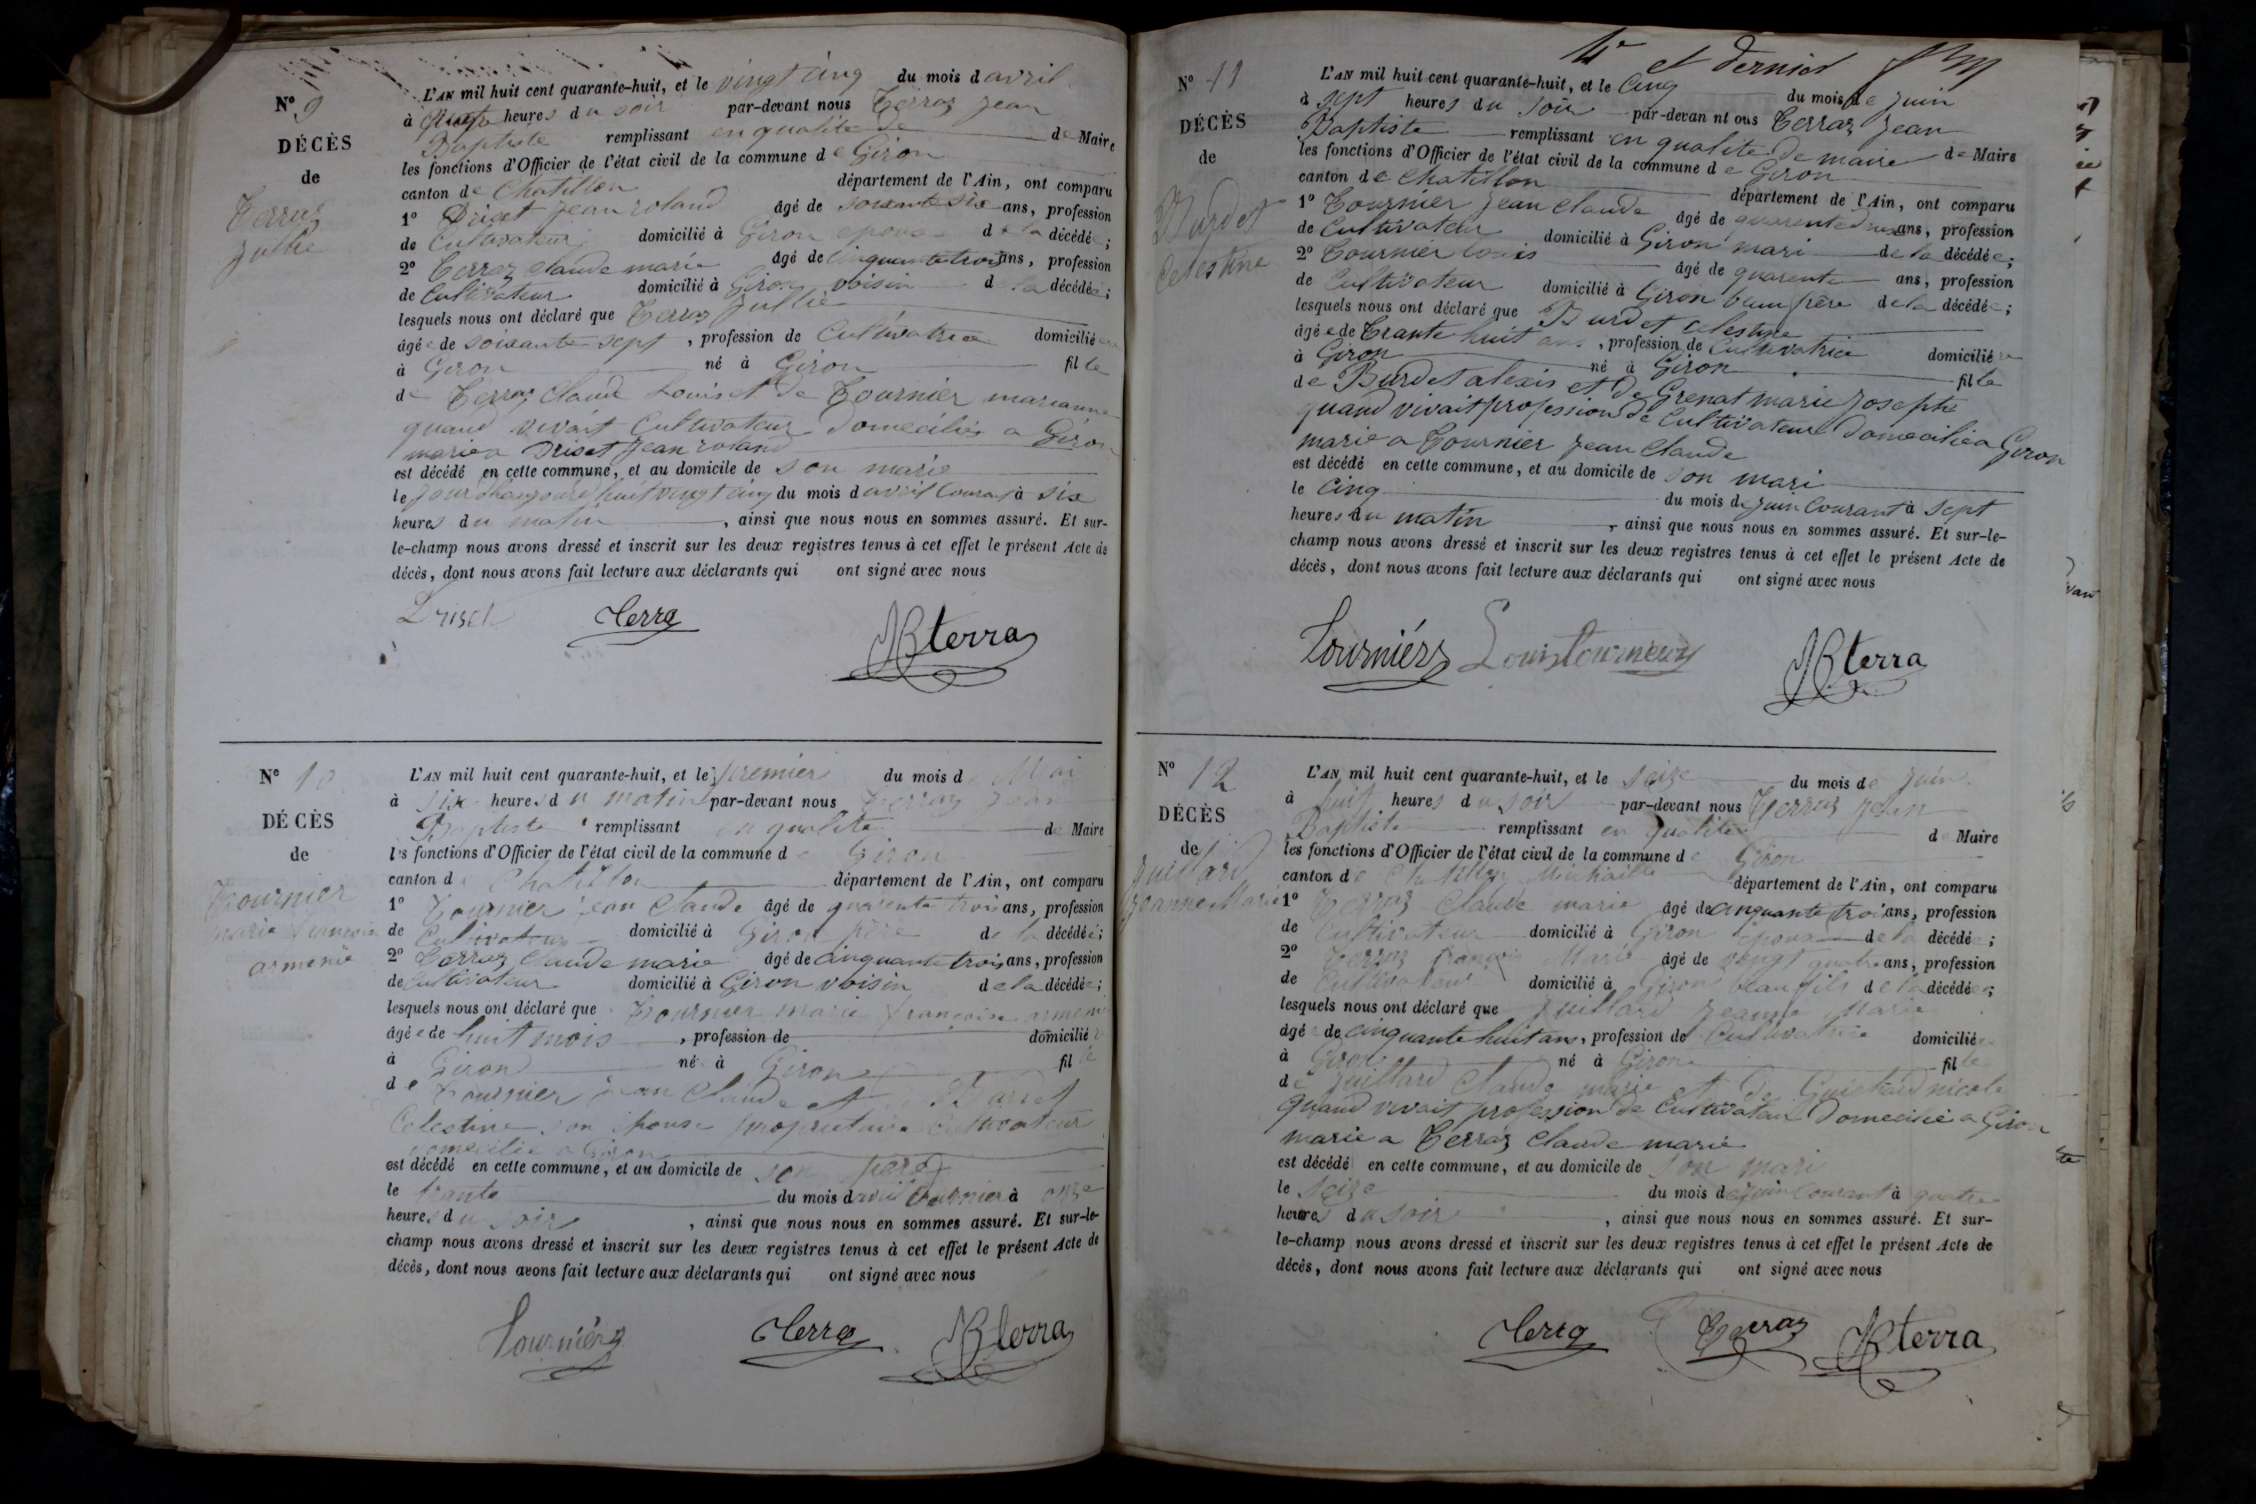 N° 9
DÉCÈS
de
Terraz
Jullie
L'AN mil huit cent quarante-huit, et le vingt cinq du mois d avril
à heures du soir par-devant nous Terraz Jean
Baptiste remplissant en qualité de de Maire
les fonctions d'Officier de l'état civil de la commune de Giron
canton de Chatillon département de l'Ain, ont comparu
1° Driset Jean roland âgé de soixante six ans, profession
de Cultivateur domicilié à Giron epoux de la décédée;
2° Terraz Claude marie âgé de cinquante trois ans, profession
de Cultivateur domicilié à Giron voisin de la décédée;
lesquels nous ont déclaré que Terraz Jullie
âgée de soixante sept, profession de Cultivatrice domiciliée
à Giron né à Giron fille
de Terraz Claude Louis et de Tournier marianne
quand vivait Cultivateur domeciliés a Giron
marie a Driset Jean roland
est décédé en cette commune, et au domicile de son marie
le jour d'haujourd'huit vingt cinq du mois d avril Courant à six
heures du matin, ainsi que nous nous en sommes assuré. Et sur-
le-champ nous avons dressé et inscrit sur les deux registres tenus à cet effet le présent Acte de
décès, dont nous avons fait lecture aux déclarants qui ont signé avec nous
Driset Terra JB terra
N° 10
DÉCÈS
de
Tournier
marie francoise
armenie
L'AN mil huit cent quarante-huit, et le premier du mois d Mai
à six heures du matin par-devant nous Terraz Jean
Baptiste remplissant en qualité de Maire
les fonctions d'Officier de l'état civil de la commune de Giron
canton de Chatillon département de l'Ain, ont comparu
1° Tournier jean Claude âgé de quarente trois ans, profession
de Cultivateur domicilié à Giron père de la décédée;
2° Terraz Claude marie âgé de cinquante trois ans, profession
de cultivateur domicilié à Giron voisin de la décédée;
lesquels nous ont déclaré que Tournier marie françoise armenie
âgée de huit mois, profession de domicilié
à Giron né à Giron fille
de Tournier jean Claude et Burdet
Celestine son épouse propriétaire Cultivateur
domecilie a Giron
est décédé en cette commune, et au domicile de son père
le trante du mois d avril dernier à onze
heures du soir, ainsi que nous nous en sommes assuré. Et sur-le-
champ nous avons dressé et inscrit sur les deux registres tenus à cet effet le présent Acte de
décès, dont nous avons fait lecture aux déclarants qui ont signé avec nous
Tourniér Terra JB terra
4e et dernier
N° 11
DÉCÈS
de
Burdet
Celestine
L'AN mil huit cent quarante-huit, et le cinq du mois de juin
à sept heures du soir par-devan nt ous Terraz Jean
Baptiste remplissant en qualité de maire de Maire
les fonctions d'Officier de l'état civil de la commune de Giron
canton de Chatillon département de l'Ain, ont comparu
1° Tournier Jean Claude âgé de quarente ans, profession
de Cultivateur domicilié à Giron mari de la décédée;
2° Tournier Louis âgé de quarente ans, profession
de Cultivateur domicilié à Giron beau frère de la décédée;
lesquels nous ont déclaré que Burdet celestine
âgée de trante huit ans, profession de Cultivatrice domiciliée
à Giron né à Giron fille
de Burdet alexis et de Grenat marie Josephe
quand vivait profession de Cultivateur domecilié a Giron
marie a Tournier Jean Claude
est décédé en cette commune, et au domicile de son mari
le cinq du mois de juin Courant à sept
heures du matin, ainsi que nous nous en sommes assuré. Et sur-le-
champ nous avons dressé et inscrit sur les deux registres tenus à cet effet le présent Acte de
décès, dont nous avons fait lecture aux déclarants qui ont signé avec nous
Tourniér Louis Tournier JB terra
N° 12
DÉCÈS
de
Juillard
Jeanne Marie
L'AN mil huit cent quarante-huit, et le seize du mois de juin
à huit heures du soir par-devant nous Terraz Jean
Baptiste remplissant en qualité de Maire
les fonctions d'Officier de l'état civil de la commune de Giron
canton de Chatillon Michaille département de l'Ain, ont comparu
1° Terraz Claude marie âgé de cinquante trois ans, profession
de Cultivateur domicilié à Giron époux de la décédée;
2° Terraz françois Marie âgé de vingt quatre ans, profession
de Cultivateur domicilié à Giron beau fils de la décédée;
lesquels nous ont déclaré que Juillard Jeanne Marie
âgée de cinquante huit ans, profession de Cultivatrice domicilié
à Giron né à Giron fille
de Juillard Claude marie et de Guichard nicole
quand vivait profession de Cultivateur domecilié a Giron
marie a Terraz Claude marie
est décédé en cette commune, et au domicile de son mari
le seize du mois de juin Courant à quatre
heures du soir, ainsi que nous nous en sommes assuré. Et sur-
le-champ nous avons dressé et inscrit sur les deux registres tenus à cet effet le présent Acte de
décès, dont nous avons fait lecture aux déclarants qui ont signé avec nous
Terra Terraz JB terra